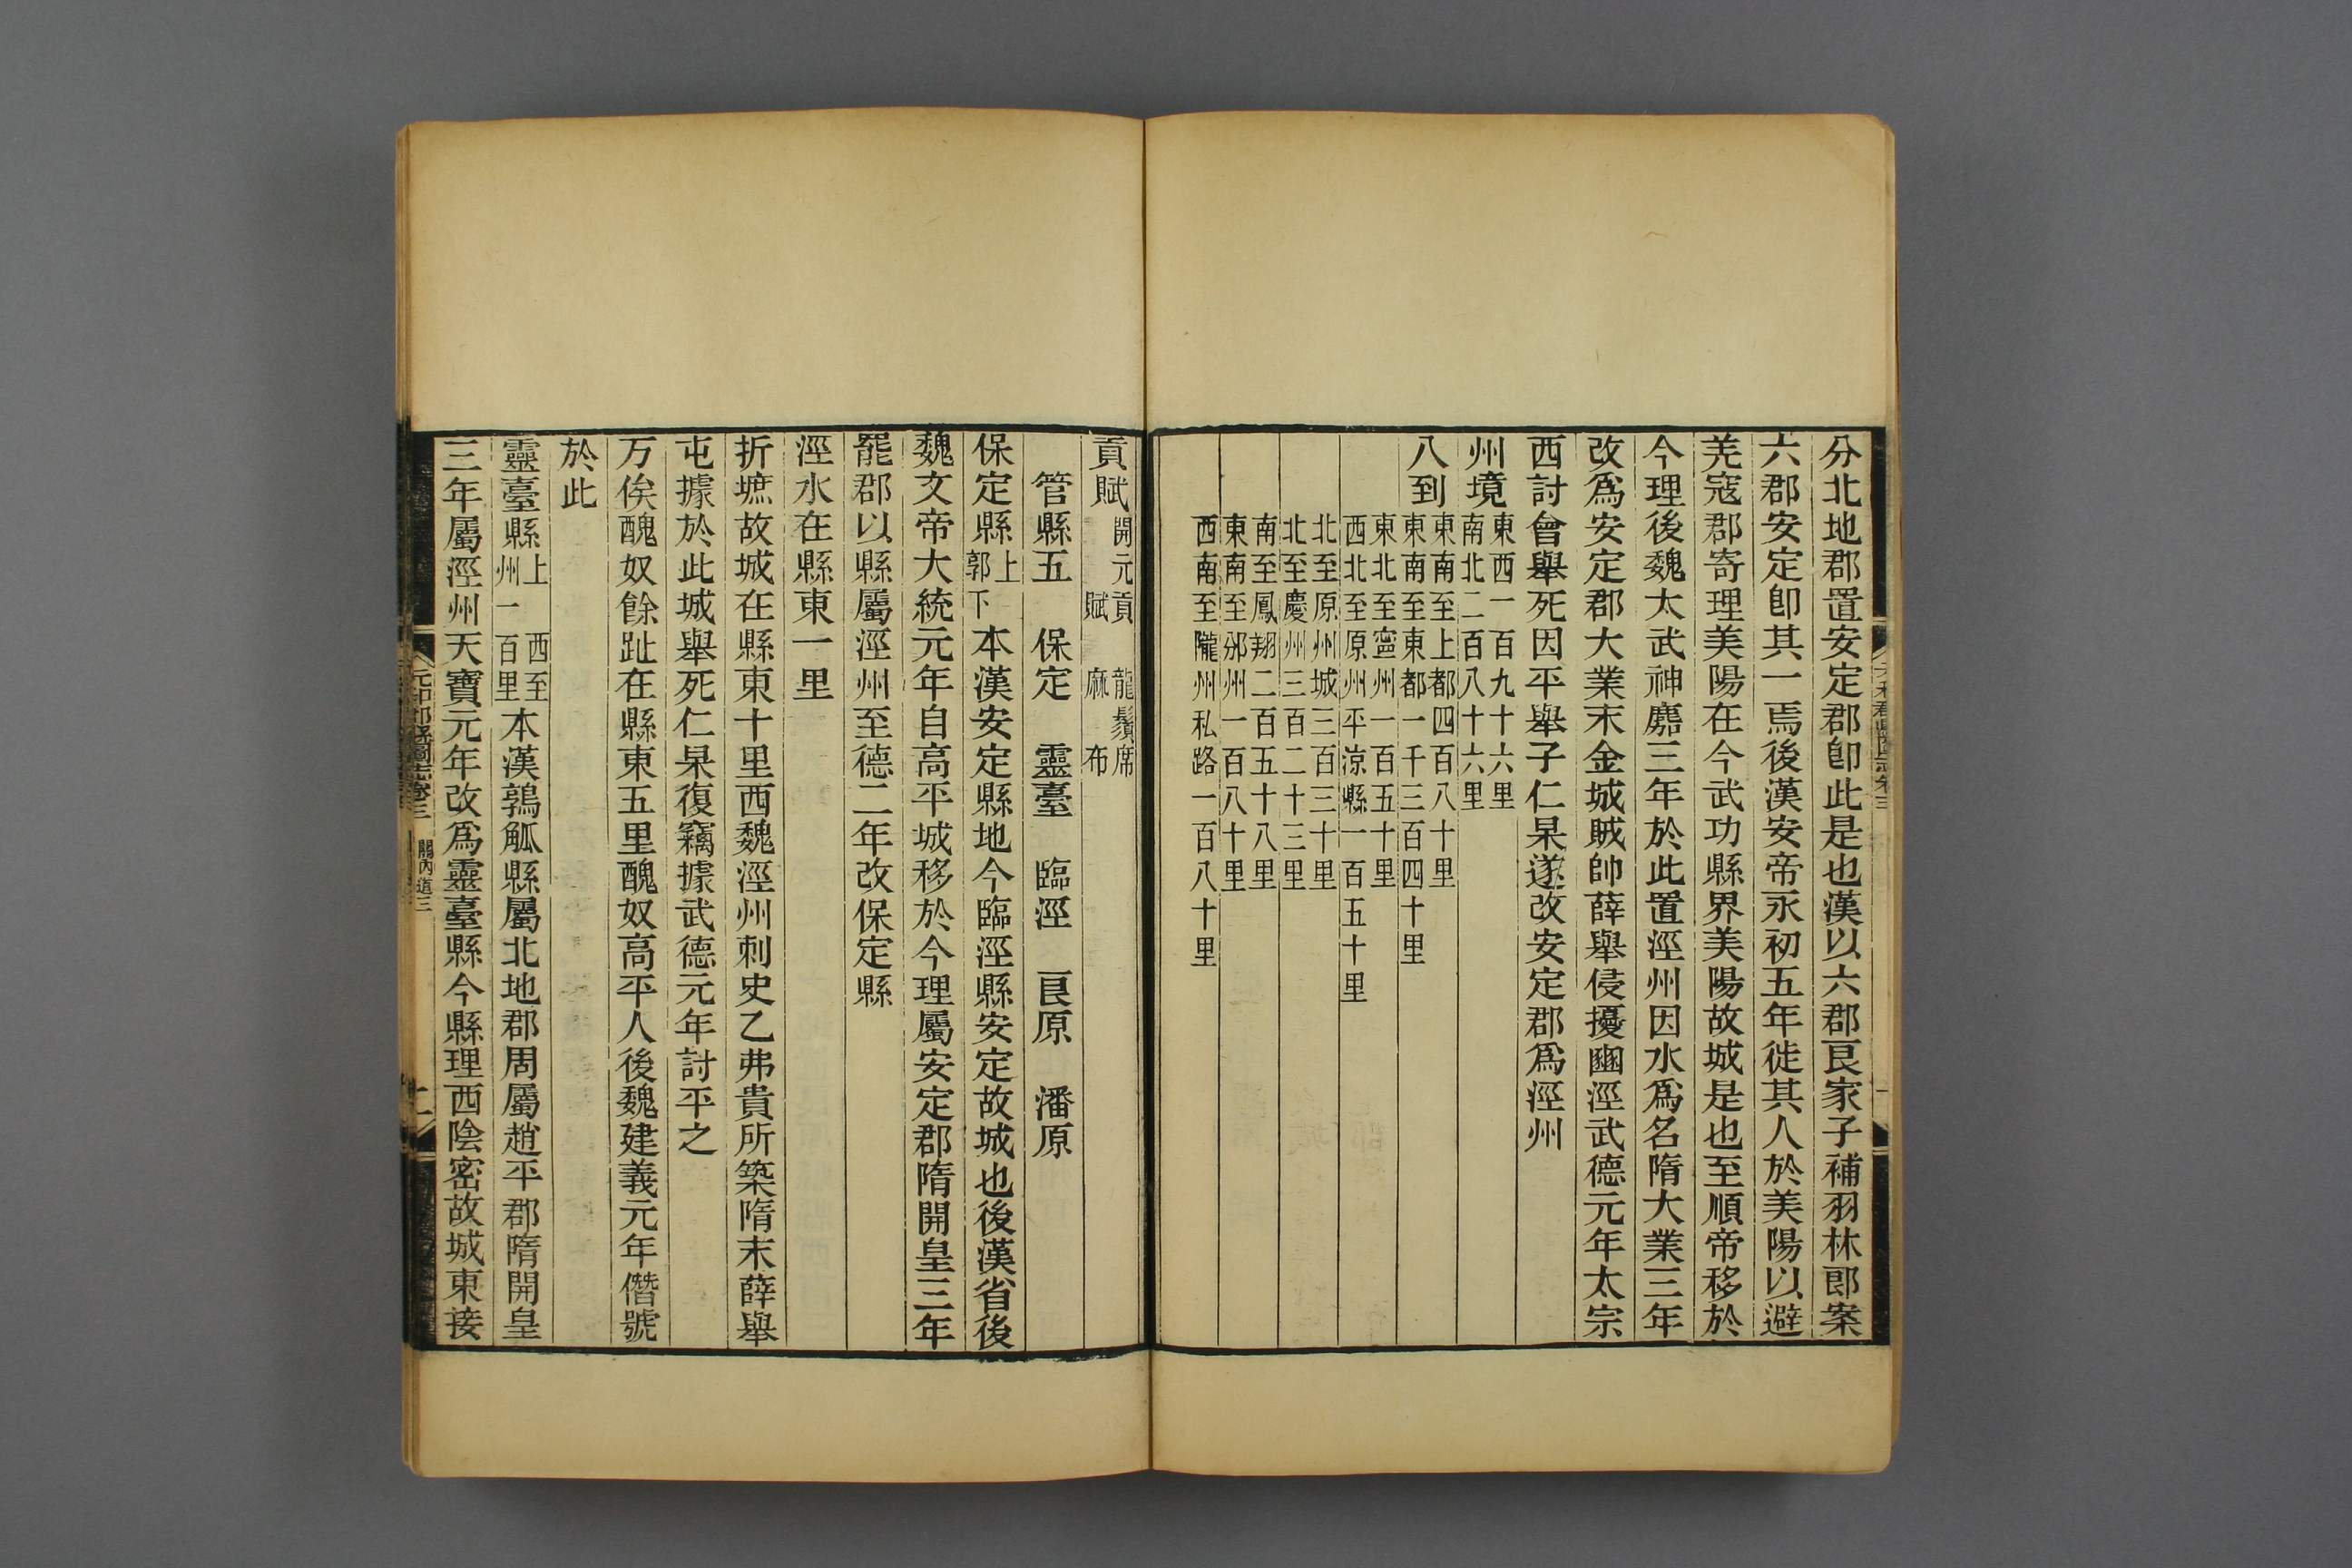 分北地郡置安定郡卽此是也漢以六郡良家子補羽林郎案
六郡安定卽其一焉後漢安帝永初五年徙其人於美陽以避
羌寇郡寄理美陽在今武功縣界美陽故城是也至順帝移於
今理後魏太武神麚三年於此置涇州因水爲名隋大業三年
改爲安定郡大業末金城賊帥薛舉侵擾豳涇武德元年太宗
西討會舉死因平舉子仁杲遂改安定郡爲涇州
州境
東西一百九十六里
南北二百八十六里
八到
東南至上都四百八十里
東南至東都一千三百四十里
東北至寧州一百五十里
西北至原州平涼縣一百五十里
北至原州城三百三十里
北至慶州三百二十三里
南至鳳翔二百五十八里
東南至邠州一百八十里
西南至隴州私路一百八十里
貢賦
開元貢 龍鬚席
賦 麻 布
管縣五 保定 靈臺 臨涇 良原 潘原
保定縣
上
郭下
本漢安定縣地今臨涇縣安定故城也後漢省後
魏文帝大統元年自高平城移於今理屬安定郡隋開皇三年
罷郡以縣屬涇州至德二年改保定縣
涇水在縣東一里
折墌故城在縣東十里西魏涇州刺史乙弗貴所築隋末薛舉
屯據於此城舉死仁杲復竊據武德元年討平之
万俟醜奴餘趾在縣東五里醜奴高平人後魏建義元年僭號
於此
靈臺縣
上 西至
州一百里
本漢鶉觚縣屬北地郡周屬趙平郡隋開皇
三年屬涇州天寶元年改爲靈臺縣今縣理西陰密故城東接
元和郡縣圖志卷三 關內道三
二